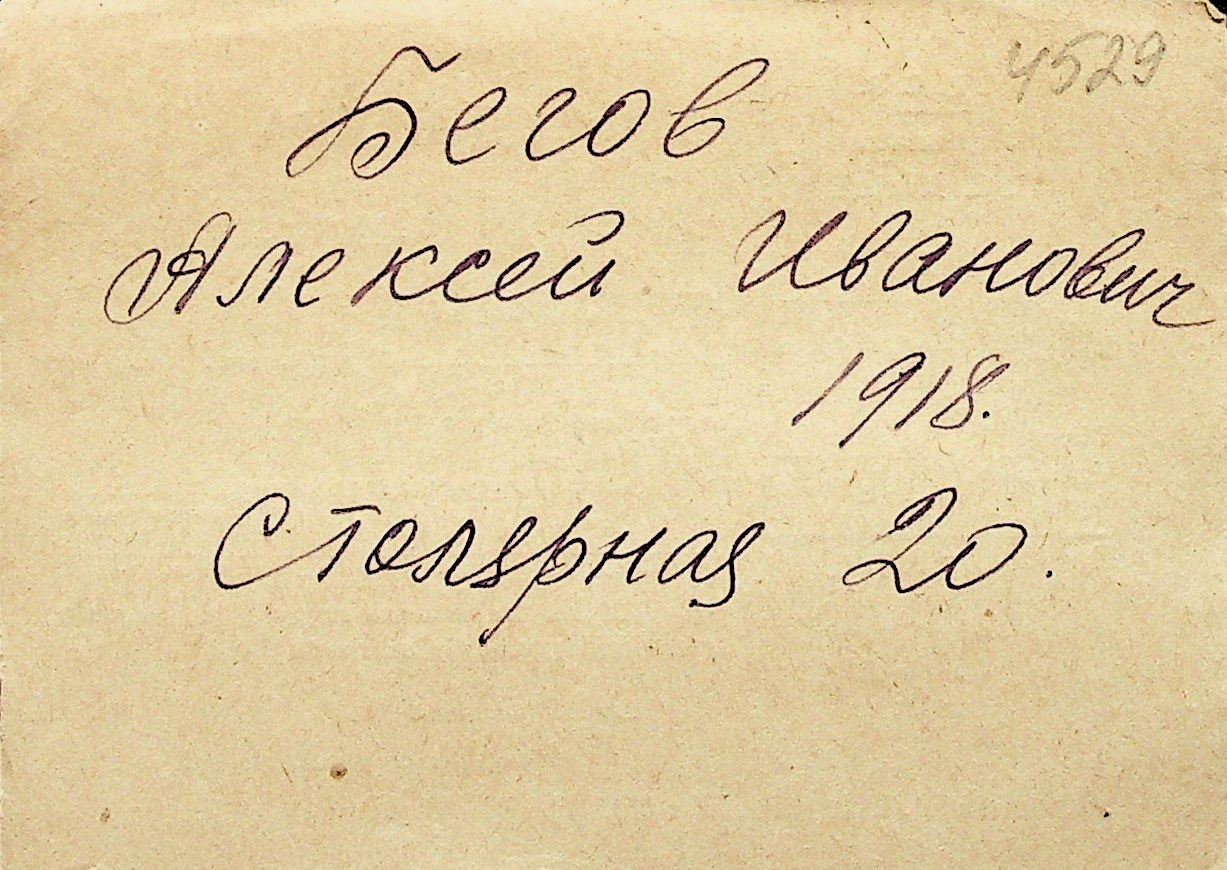 4529
Бегов
Алексей Иванович
1918.
Столярная 20.